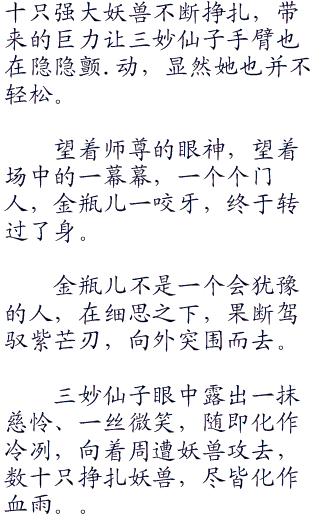 十只强大妖兽不断挣扎，带
来的巨力让三妙仙子手臂也
在隐隐颤.动，显然她也并不
轻松。
望着师尊的眼神，望着
场中的一幕幕，一个个门
人，金瓶儿一咬牙，终于转
过了身。
金瓶儿不是一个会犹豫
的人，在细思之下，果断驾
驭紫芒刃，向外突围而去。
三妙仙子眼中露出一抹
慈怜、一丝微笑，随即化作
冷冽，向着周遭妖兽攻去，
数十只挣扎妖兽，尽皆化作
血雨。。